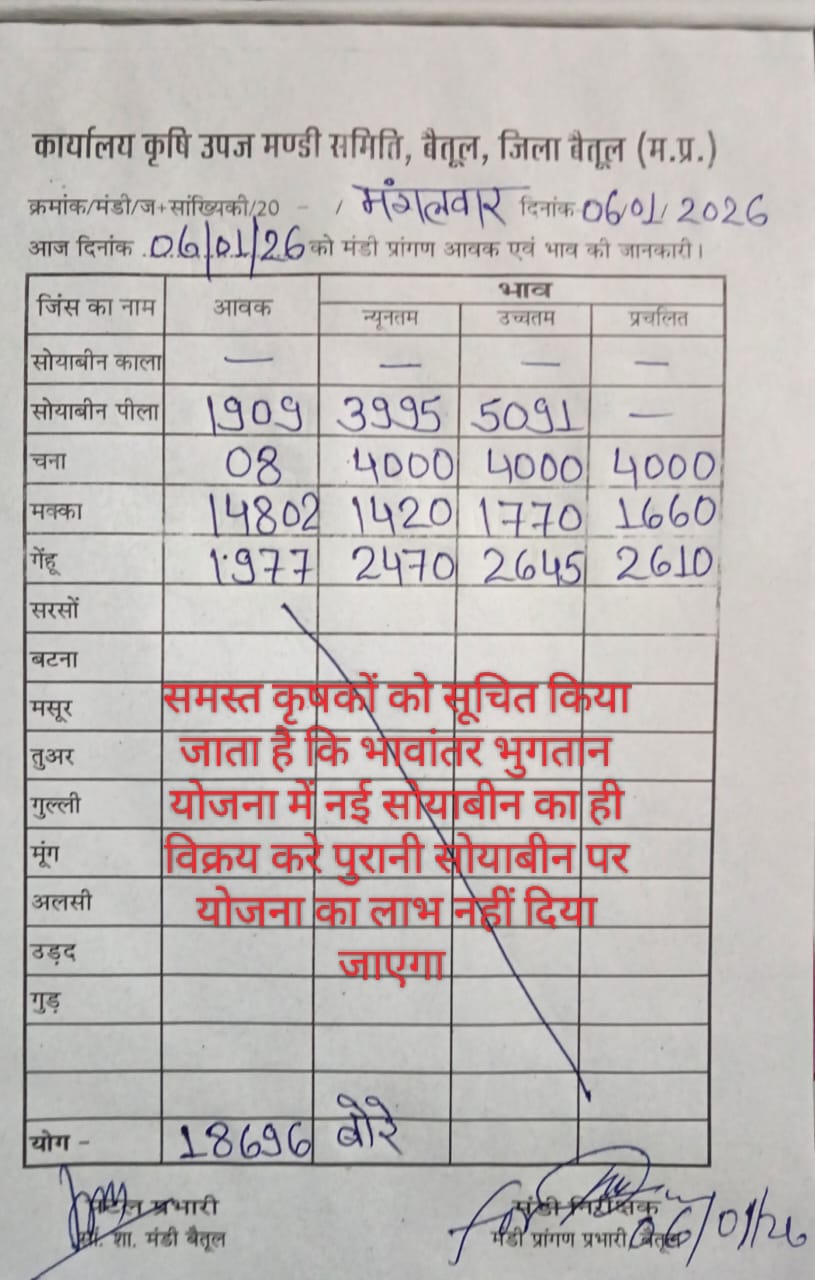 कार्यालय कृषि उपज मण्डी समिति, बैतूल, जिला बैतूल (म.प्र.)
क्रमांक/मंडी/ज+सांख्यिकी/20 - / मंगलवार दिनांक 06/01/2026
आज दिनांक .06/01/26 को मंडी प्रांगण आवक एवं भाव की जानकारी।
जिंस का नाम आवक भाव
न्यूनतम उच्चतम प्रचलित
सोयाबीन काला — — — —
सोयाबीन पीला 1909 3995 5091 —
चना 08 4000 4000 4000
मक्का 14802 1420 1770 1660
गेंहू 1977 2470 2645 2610
सरसों
बटना
मसूर
तुअर
गुल्ली
मूंग
अलसी
उड़द
गुड़
समस्त कृषकों को सूचित किया
जाता है कि भावांतर भुगतान
योजना में नई सोयाबीन का ही
विक्रय करे पुरानी सोयाबीन पर
योजना का लाभ नहीं दिया
जाएगा
योग - 18696 बोरे
प्रभारी मंडी निरीक्षक
शा. मंडी बैतूल मंडी प्रांगण प्रभारी बैतूल 06/01/26